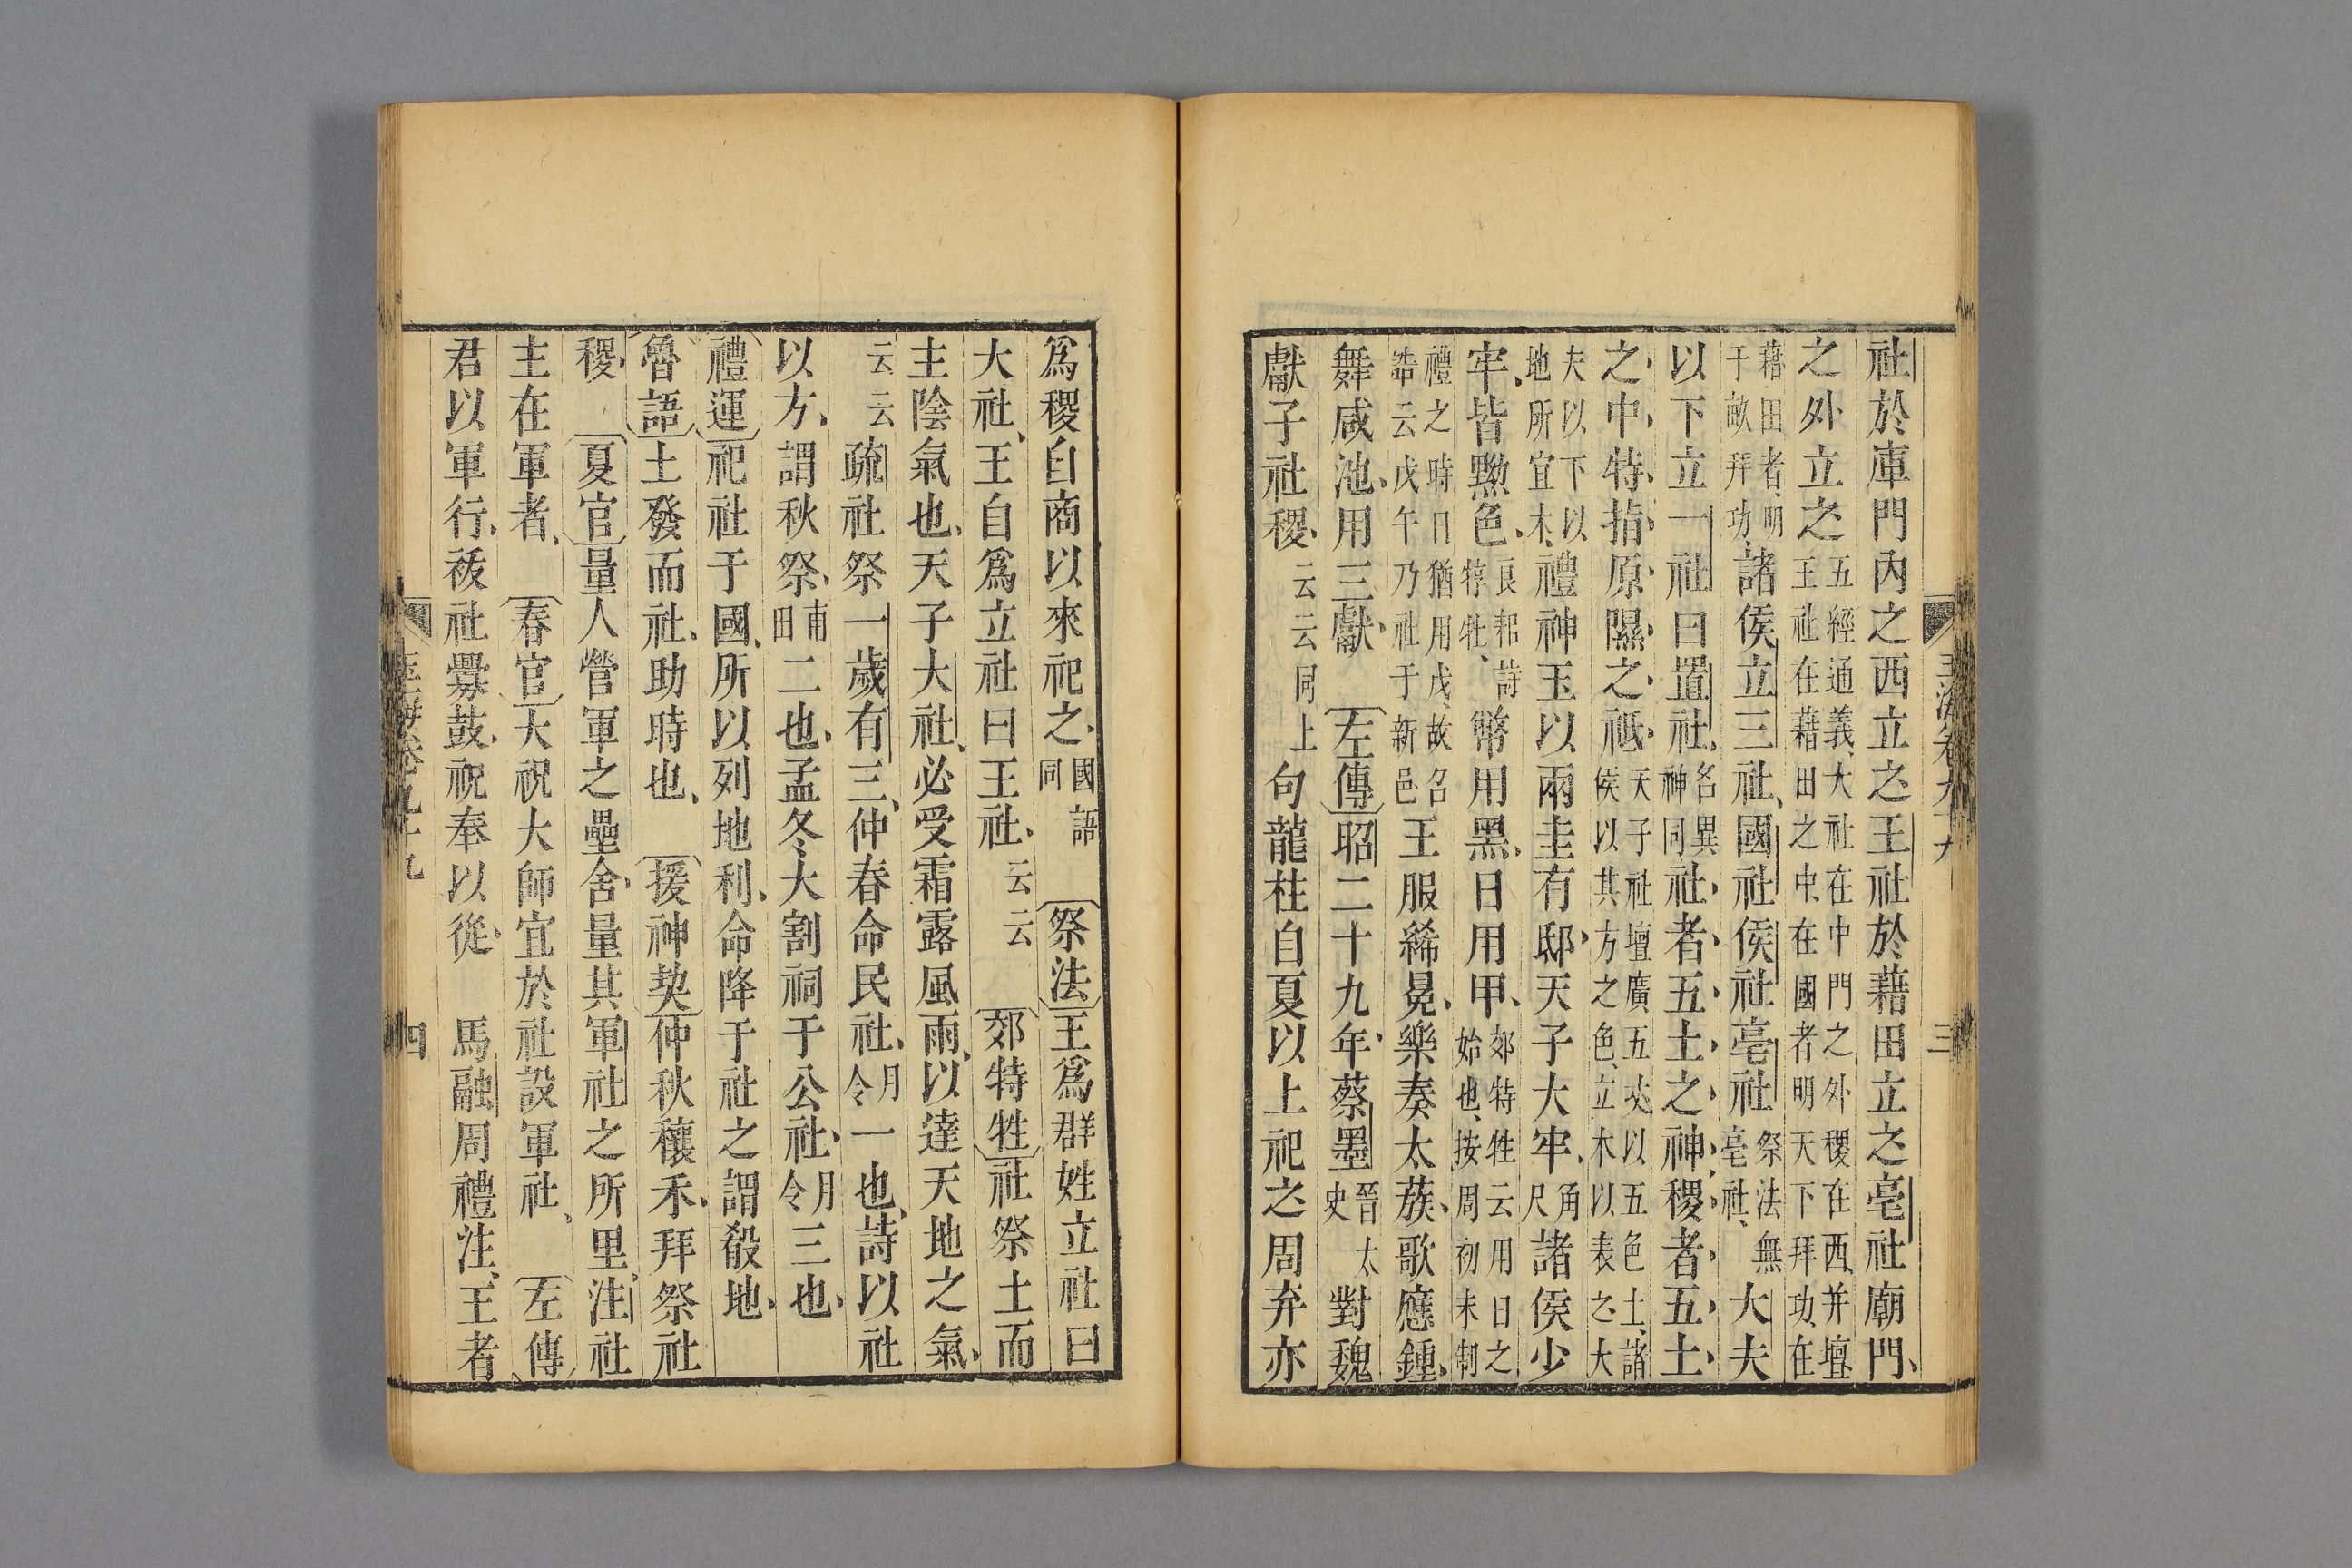 玉海卷九十九 三
社於庫門內之西立之王社於藉田立之亳社廟門、
之外立之五經通義、大社在中門之外稷在西、并壇、王社在藉田之中、在國者明天下拜功、在
藉田者、明于畝拜功、諸侯立三社、國社侯社亳社祭法無亳社、大夫
以下立一社曰置社、名異神同社者五土之神稷者五土
之中特指原隰之祗天子社壇廣五丈以五色土、諸侯以其方之色、立木以表之大
夫以下以地所宜木、禮神玉以兩圭有邸天子大牢、角尺諸侯少
牢、皆黝色、良耜詩犉牡、幣用黑、日用甲、郊特牲云用日之始也、按周初未制
禮之時日猶用戊、故召誥云戊午乃社于新邑王服絺冕、樂奏太蔟、歌應鍾、
舞咸池、用三獻 左傳昭二十九年、蔡墨晉太史對魏
獻子社稷、云云同上句龍柱自夏以上祀之周弃亦
爲稷自商以來祀之、國語同 祭法王爲群姓立社曰
大社、王自爲立社曰王社、云云 郊特牲社祭土而
主陰氣也、天子大社、必受霜露風雨、以達天地之氣、
云云疏社祭一歲有三、仲春命民社、月令一也、詩以社
以方、謂秋祭、甫田二也、孟冬大割祠于公社、月令三也、
禮運祀社于國、所以列地利、命降于社之謂殽地、
魯語土發而社、助時也、 援神契仲秋穫禾、拜祭社
稷、 夏官量人營軍之壘舍、量其軍社之所里、注社
主在軍者、 春官大祝大師宜於社設軍社、 左傳
君以軍行、祓社釁鼓、祝奉以從、 馬融周禮注、王者
玉海卷九十九 四